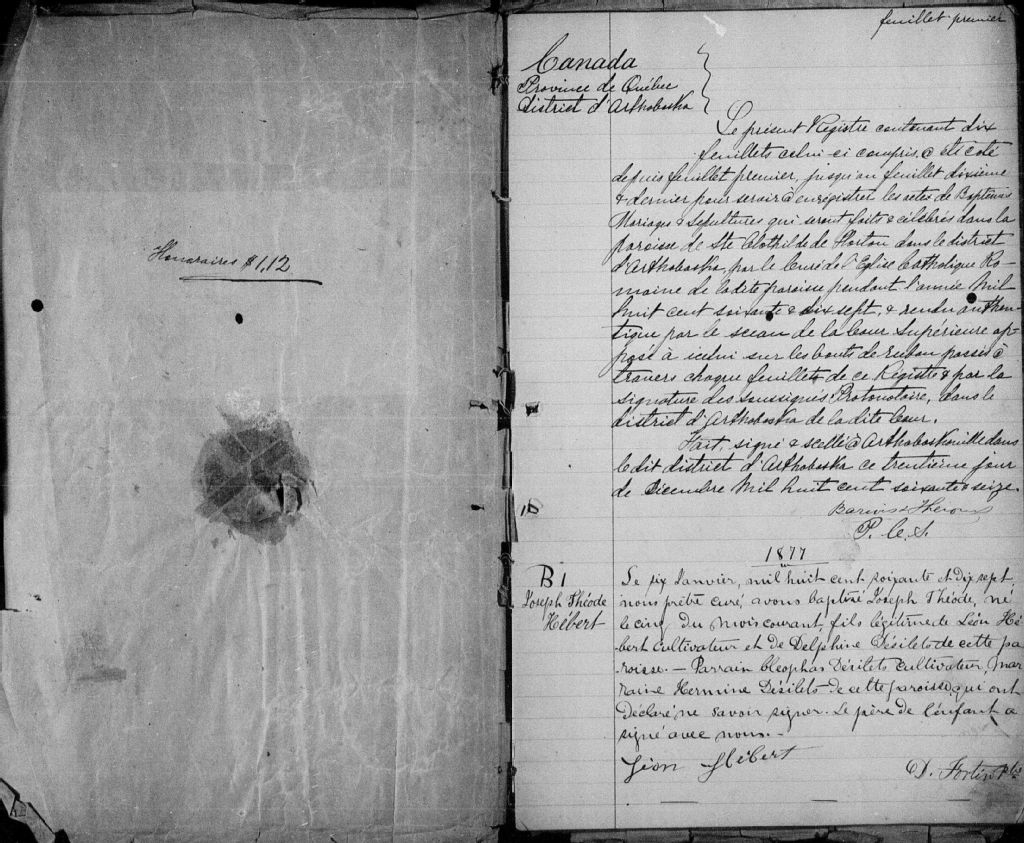 Honoraires $1,12
feuillet premier
Canada
Province de Québec
District d'Arthabaska
Le présent Registre contenant dix
feuillets celui-ci compris, a été coté
depuis feuillet premier, jusqu'au feuillet dixième
& dernier pour servir à enregistrer les actes de Baptêmes
Mariages & Sépultures qui seront faits & célébrés dans la
paroisse de Ste Clothilde de Horton dans le district
d'Arthabaska, par le Curé de l'Eglise Catholique Ro-
maine de la dite paroisse pendant l'année Mil
huit cent soixante & dix sept, & rendu authen-
tique par le sceau de la Cour Supérieure ap-
posé à icelui sur les bouts de ruban passés à
travers chaque feuillets de ce Registre & par la
signature des soussignés Protonotaire, dans le
district d'Arthabaska de la dite Cour.
Fait, signé & scellé à Arthabaskaville dans
le dit district d'Arthabaska ce trentième jour
de Décembre Mil huit cent soixante & seize.
Barwis & Theroux
P. C. S.
1877
B1
Joseph Théode
Hébert
Le six Janvier, mil huit cent soixante et dix sept,
nous prêtre curé, avons baptisé Joseph Théode, né
le cinq du mois courant, fils légitime de Léon Hé-
bert cultivateur et de Delphine Désilets de cette pa
roisse. — Parrain Cléophas Désilets cultivateur, mar
raine Hermine Désilets de cette paroisse, qui ont
déclaré ne savoir signer. Le père de l'enfant a
signé avec nous. —
Léon Hébert
D. Fortin Ptre